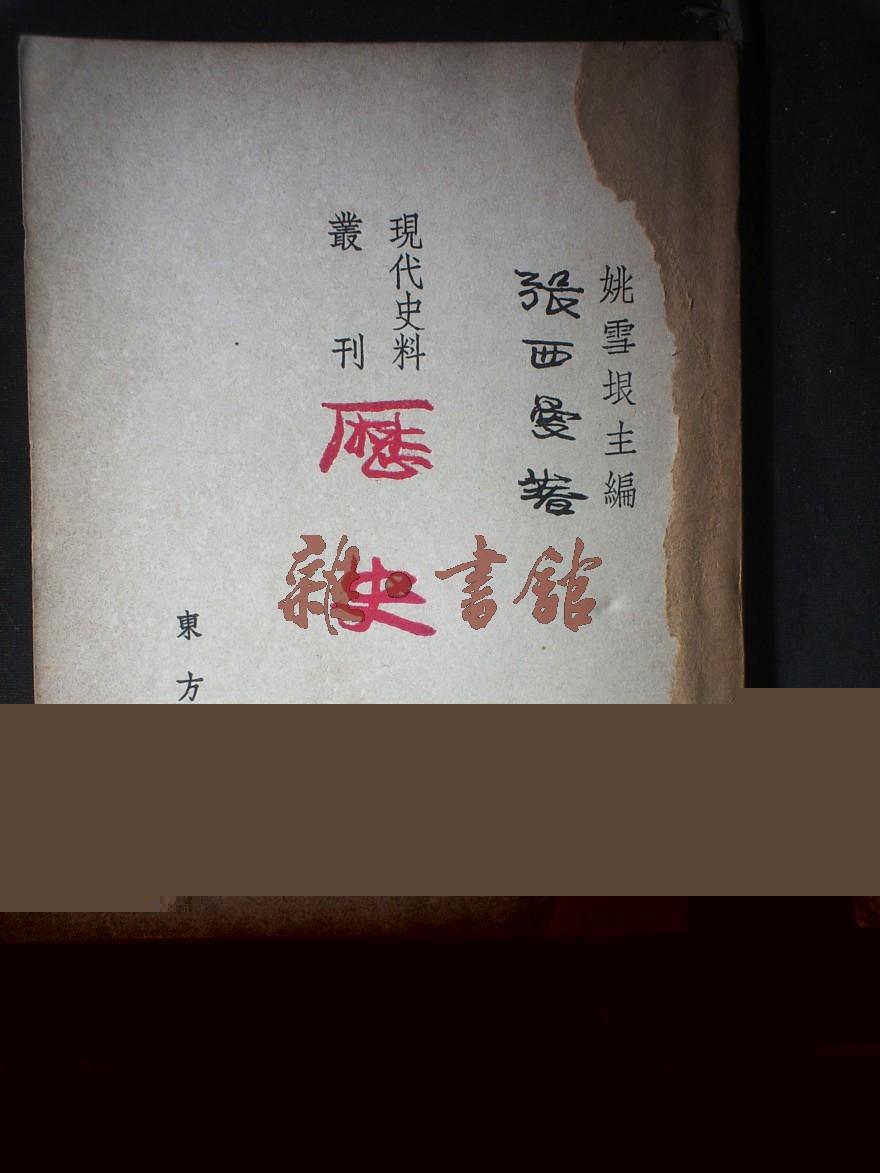 姚雪垠主編
張西曼著
現代史料
叢刊
歷史
東方
雜·書館